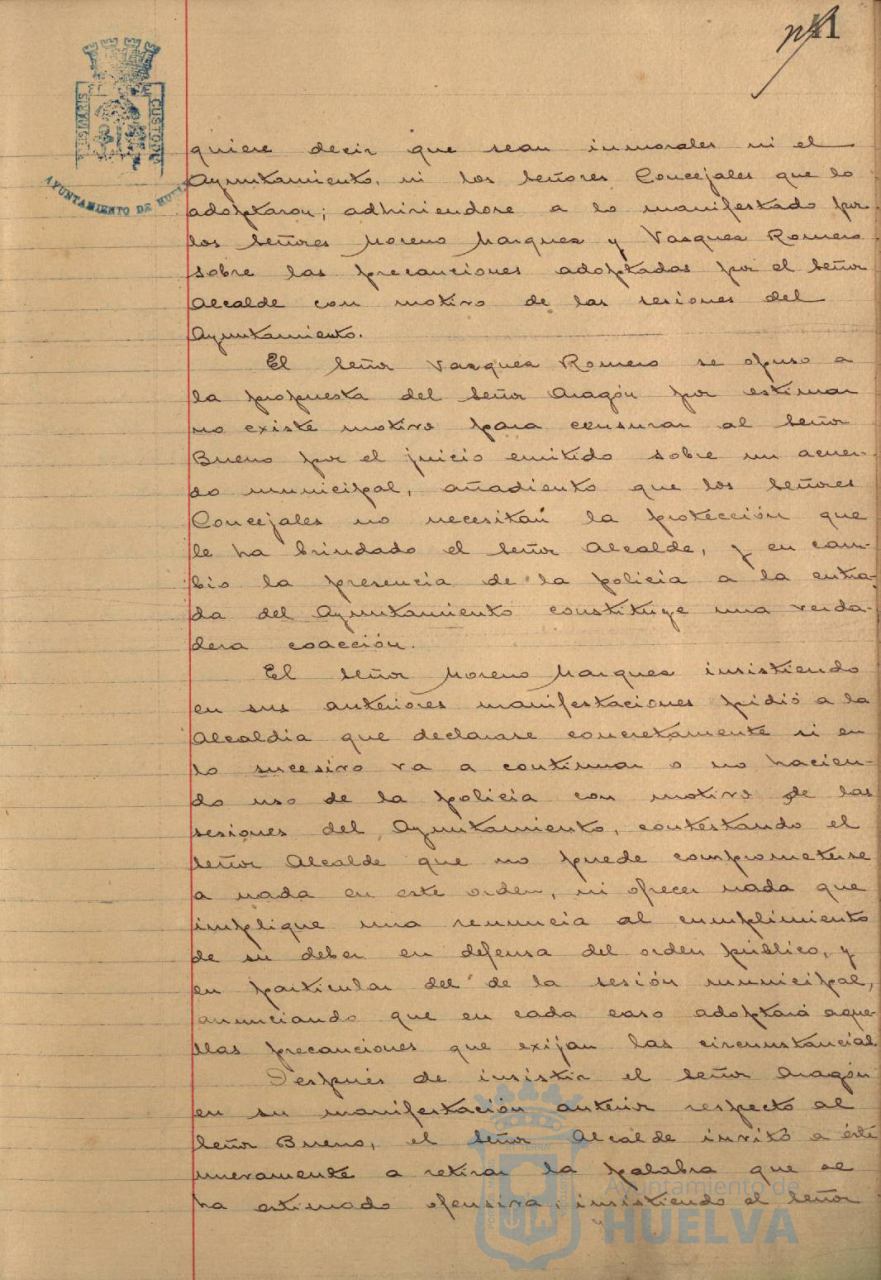 11
AYUNTAMIENTO DE HUELVA
quiere decir que sean inmorales ni el
Ayuntamiento, ni los Señores Concejales que lo
adoptaron; adhiriendose a lo manifestado por
los Señores Moreno Marquez y Vazquez Romero
sobre las precauciones adoptadas por el Señor
Alcalde con motivo de las sesiones del
Ayuntamiento.
El Señor Vazquez Romero se opuso a
la propuesta del Señor Aragón por estimar
no existe motivo para censurar al Señor
Bueno por el juicio emitido sobre un acuer-
do municipal, añadiento que los Señores
Concejales no necesitan la protección que
le ha brindado el Señor Alcalde, y en cam-
bio la presencia de la policia a la entra-
da del Ayuntamiento constituye una verda-
dera coacción.
El Señor Moreno Marquez insistiendo
en sus anteriores manifestaciones pidió a la
Alcaldia que declarase concretamente si en
lo sucesivo va a continuar o no hacien-
do uso de la policia con motivo de las
sesiones del Ayuntamiento, contestando el
Señor Alcalde que no puede comprometerse
a nada en este orden, ni ofrecer nada que
implique una renuncia al cumplimiento
de su deber en defensa del orden público, y
en particular del de la sesión municipal,
anunciando que en cada caso adoptará aque-
llas precauciones que exijan las circunstancias.
Después de insistir el Señor Aragón
en su manifestación anterior respecto al
Señor Bueno, el Señor Alcalde invitó a éste
nuevamente a retirar la palabra que se
ha estimado ofensiva, insistiendo el Señor
Ayuntamiento de
HUELVA